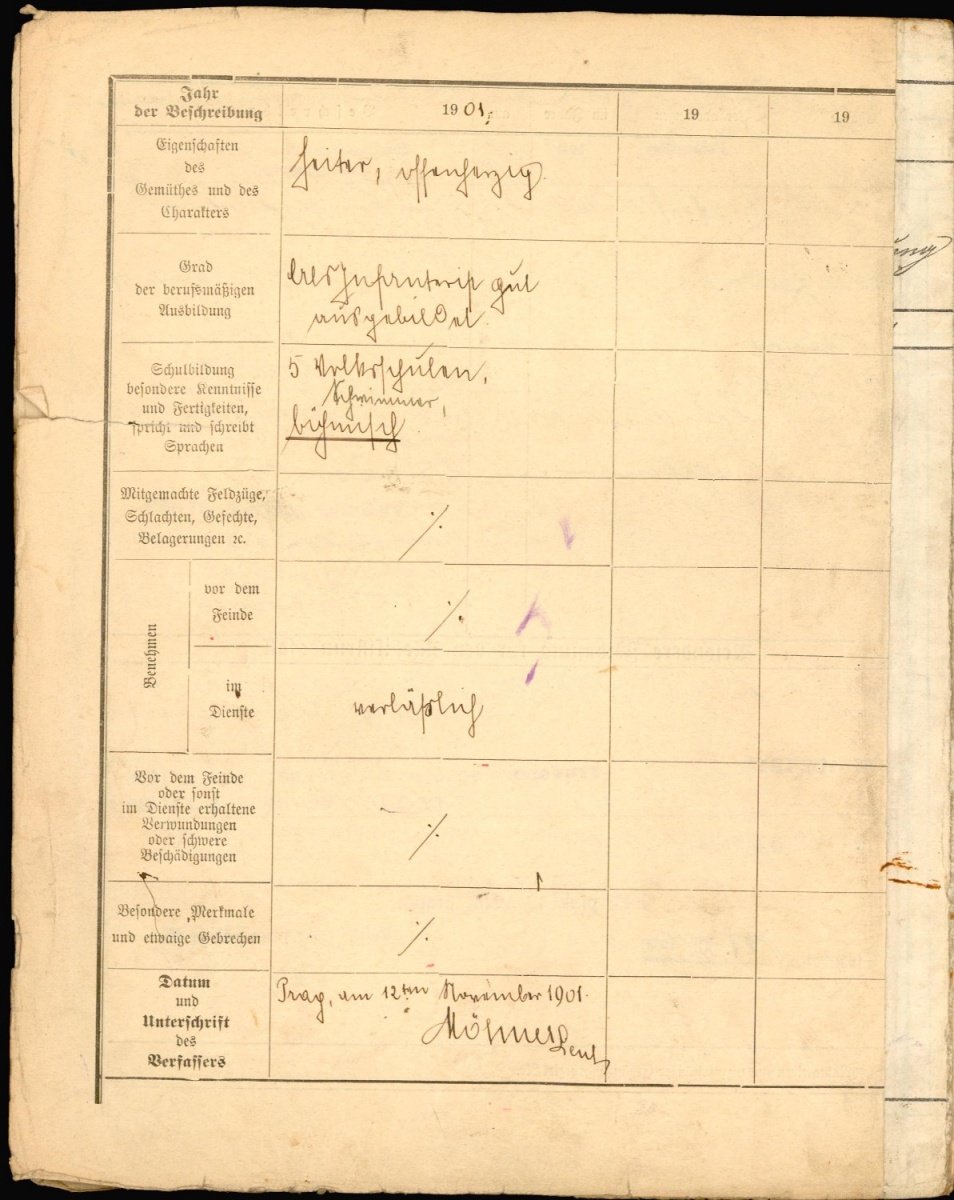 Jahr
der Beschreibung
1901.
19
19
Eigenschaften
des
Gemüthes und des
Charakters
heiter, offenherzig.
Grad
der berufsmäßigen
Ausbildung
als Infanterist gut
ausgebildet.
Schulbildung
besondere Kenntnisse
und Fertigkeiten,
spricht und schreibt
Sprachen
5 Volksschulen,
Schwimmer,
böhmisch
Mitgemachte Feldzüge,
Schlachten, Gefechte,
Belagerungen ꝛc.
⁒
Benehmen
vor dem
Feinde
⁒
im
Dienste
verläßlich
Vor dem Feinde
oder sonst
im Dienste erhaltene
Verwundungen
oder schwere
Beschädigungen
⁒
Besondere Merkmale
und etwaige Gebrechen
⁒
Datum
und
Unterschrift
des
Verfassers
Prag, am 12ten November 1901.